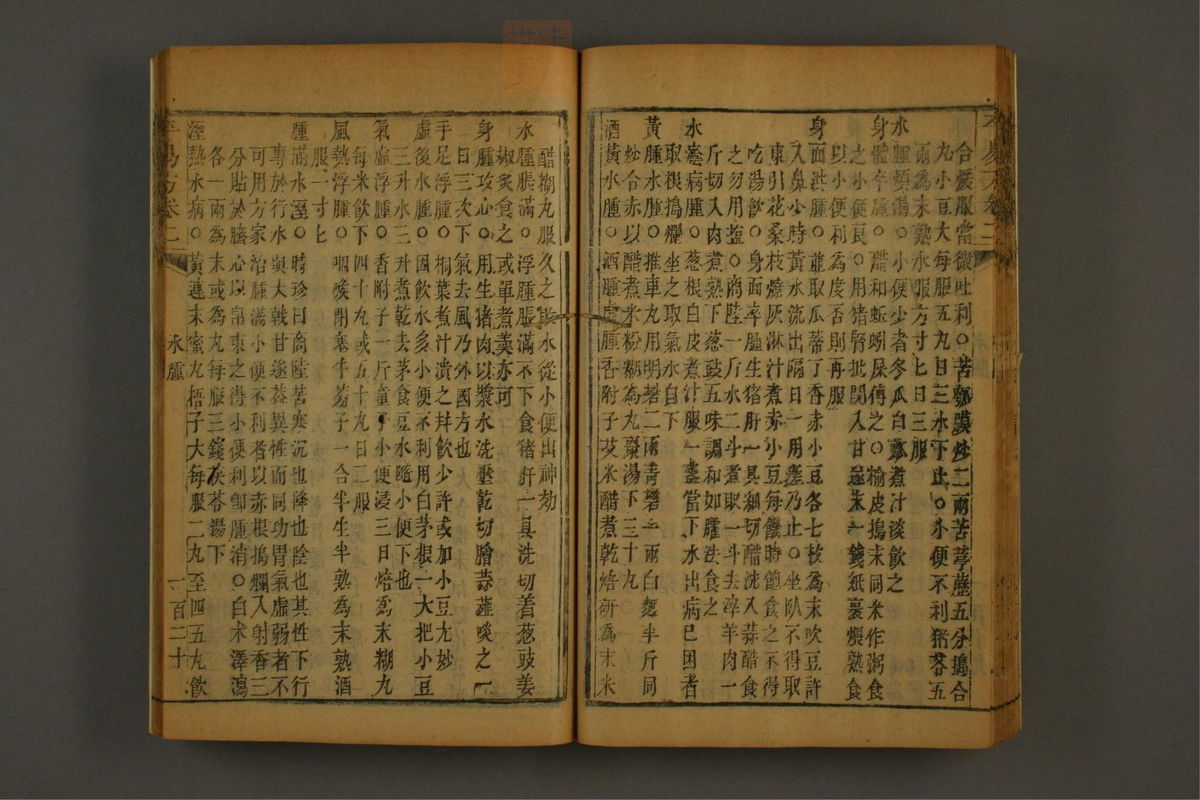 合煖服當微吐利○苦瓠膜炒二兩苦葶藶五分搗合
丸小豆大每服五丸日三水下止○小便不利猪苓五
兩爲末熟水服方寸匕日三服
水腫煩渴○小便少者冬瓜白瓤煮汁淡飲之
身體卒腫○醋和蚯蚓屎傅之○榆皮搗末同米作粥食
之小便良○用猪腎批開入甘遂末一錢紙裹煨熟食
以小便利爲度否則再服
身面洪腫○取瓜蒂丁香赤小豆各七枚爲末吹豆許
入鼻少時黃水流出隔日一用瘥乃止○坐臥不得取
東引花桑枝燒灰淋汁煮赤小豆每饑時飽食之不得
吃湯飲○身面卒腫生猪肝一具細切醋洗入蒜醋食
之勿用塩○商陸一斤水二斗煮取一斗去滓羊肉一
斤切入內煮熟下葱豉五味調和如臛法食之
水病腫○葱根白皮煮汁服一盞當下水出病已困者
取根搗爛坐之取氣水自下
黃腫水腫○推車丸用明礬二兩青礬一兩白麵半斤同
炒令赤以醋煮米粉糊爲丸棗湯下三十丸
酒黃水腫○酒腫虛腫香附子艾米醋煮乾焙研爲末米
醋糊丸服久之敗水從小便出神効
水腫脹滿○浮腫脹滿不下食猪肝一具洗切著葱豉姜
椒炙食之或單煮羹亦可
身腫攻心○用生猪肉以漿水洗壓乾切膾蒜薤啖之一
日三次下氣去風乃外國方也
手足腫○桐葉煮汁漬之幷飲少許或加小豆尤妙
虛後水腫○因飲水多小便不利用白茅根一大把小豆
三升水三升煮乾去茅食豆水隨小便下也
氣虛浮腫○香附子一斤童子小便浸三日焙爲末糊丸
每米飲下四十丸或五十丸日三服
風熱浮腫○咽喉閉塞牛蒡子一合半生半熟爲末熟酒
服一寸匕
腫滿水溼○時珍曰商陸苦寒沉也降也陰也其性下行
專於行水與大戟甘遂蓋異性而同功胃氣虛弱者不
可用方家治腫滿小便不利者以赤根搗爛入射香三
分貼於臍心以帛束之得小便利卽腫消○白朮澤瀉
各一兩爲末或爲丸每服三錢茯苓湯下
溼熱水病○黃連末蜜丸梧子大每服二丸至四五丸飲
平易方卷二
水腫
一百二十